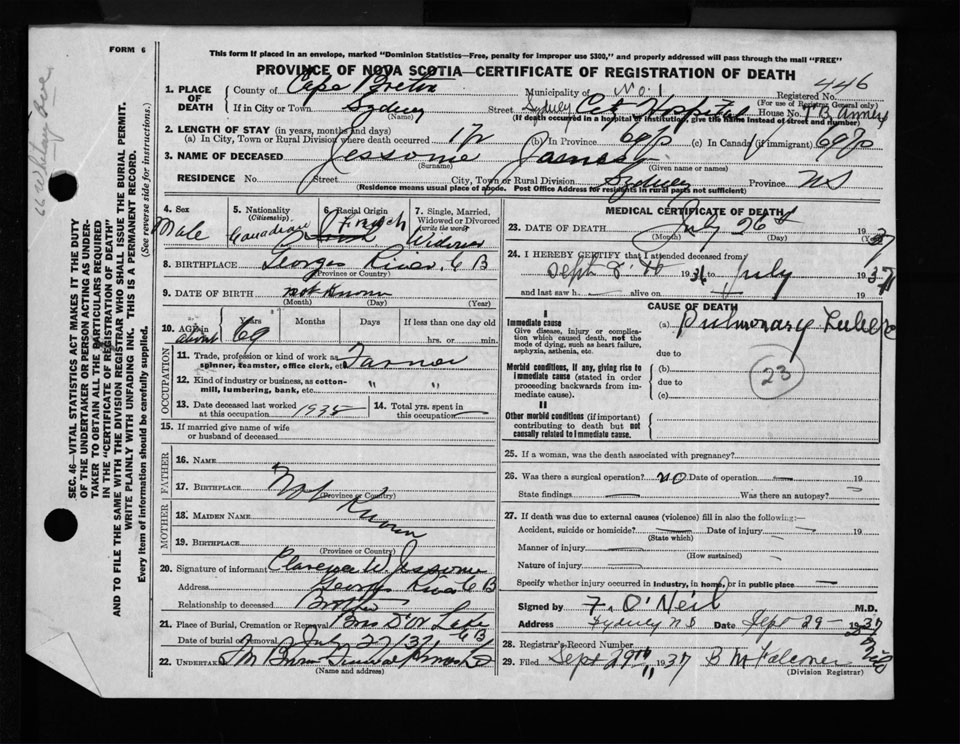 FORM 6
This form if placed in an envelope, marked "Dominion Statistics—Free, penalty for improper use $300," and properly addressed will pass through the mail "FREE"
PROVINCE OF NOVA SCOTIA—CERTIFICATE OF REGISTRATION OF DEATH
446
1. PLACE OF DEATH
County of Cape Breton Municipality of No. 1 Registered No.
(For use of Registrar General only)
If in City or Town Sydney Street Sydney City Hospital House No. T B Annex
(Name) (If death occurred in a hospital or institution, give the name instead of street and number)
2. LENGTH OF STAY (in years, months and days)
(a) In City, Town or Rural Division where death occurred (b) In Province (c) In Canada (if immigrant)
3. NAME OF DECEASED Jessome James
(Surname) (Given name or names)
RESIDENCE No. Street City, Town or Rural Division Sydney Province NS
(Residence means usual place of abode. Post Office Address for residents in rural parts not sufficient)
4. Sex Male
5. Nationality (Citizenship) Canadian
6. Racial Origin French
7. Single, Married, Widowed or Divorced (write the word) Widower
8. BIRTHPLACE Georges River, C B
(Province or Country)
9. DATE OF BIRTH not known
(Month) (Day) (Year)
10. AGE in about Years 69 Months Days If less than one day old
hrs. or min.
OCCUPATION
11. Trade, profession or kind of work as spinner, teamster, office clerk, etc. Farmer
12. Kind of industry or business, as cotton-mill, lumbering, bank, etc. " "
13. Date deceased last worked at this occupation 1935
14. Total yrs. spent in this occupation
15. If married give name of wife or husband of deceased
FATHER
16. Name
17. Birthplace Not
(Province or Country)
MOTHER
18. Maiden Name Known
19. Birthplace
(Province or Country)
20. Signature of informant Clarence W. Jessome
Address Georges River C B
Relationship to deceased Brother
21. Place of Burial, Cremation or Removal Bras D'Or Lake C B
Date of burial or removal July 27/37
22. UNDERTAKER
(Name and address)
MEDICAL CERTIFICATE OF DEATH
23. DATE OF DEATH July 26 1937
(Month) (Day)
24. I HEREBY CERTIFY that I attended deceased from
Sept 8th 1936 to July 1937
and last saw h alive on 19
CAUSE OF DEATH
I
Immediate cause
Give disease, injury or complication which caused death, not the mode of dying, such as heart failure, asphyxia, asthenia, etc.
(a) Pulmonary
due to
Morbid conditions, if any, giving rise to immediate cause (stated in order proceeding backwards from immediate cause).
(b)
due to
(c)
23
II
Other morbid conditions (if important) contributing to death but not causally related to immediate cause.
25. If a woman, was the death associated with pregnancy?
26. Was there a surgical operation? no Date of operation 19
State findings Was there an autopsy?
27. If death was due to external causes (violence) fill in also the following:—
Accident, suicide or homicide? Date of injury 19
(State which)
Manner of injury
(How sustained)
Nature of injury
Specify whether injury occurred in industry, in home, or in public place
Signed by F. O'Neil M.D.
Address Sydney N S Date Sept 29 1937
28. Registrar's Record Number
29. Filed Sept 29th 1937 B McFalconer
(Division Registrar)
SEC. 46—VITAL STATISTICS ACT MAKES IT THE DUTY
OF THE UNDERTAKER OR PERSON ACTING AS UNDER-
TAKER TO OBTAIN ALL THE PARTICULARS REQUIRED
IN THE "CERTIFICATE OF REGISTRATION OF DEATH"
AND TO FILE THE SAME WITH THE DIVISION REGISTRAR WHO SHALL ISSUE THE BURIAL PERMIT.
WRITE PLAINLY WITH UNFADING INK. THIS IS A PERMANENT RECORD.
Every item of information should be carefully supplied.
(See reverse side for instructions.)